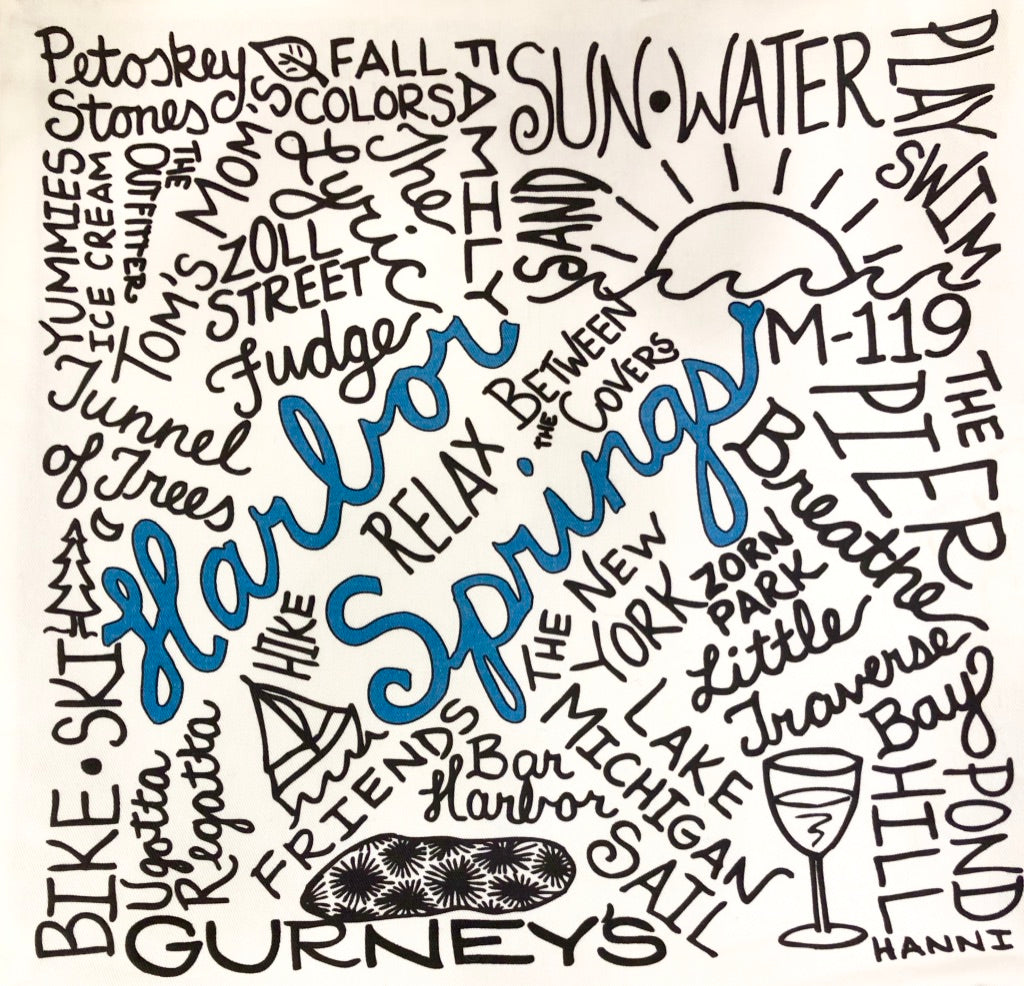 Petoskey
Stones
FALL
COLORS
FAMILY
SUN • WATER
PLAY
SWIM
SAND
YUMMIES
ICE CREAM
THE
OUTFITTER
TOM'S MOM'S
The
Lyric
ZOLL
STREET
Fudge
M-119
BETWEEN
THE COVERS
THE
PIER
Tunnel
of Trees
Harbor
Springs
RELAX
Breathe
THE NEW
YORK
ZORN
PARK
Little
Traverse
Bay
HIKE
BIKE • SKI
Ugotta
Regatta
FRIENDS
Bar
Harbor
LAKE
MICHIGAN
SAIL
POND
HILL
GURNEY'S
HANNI